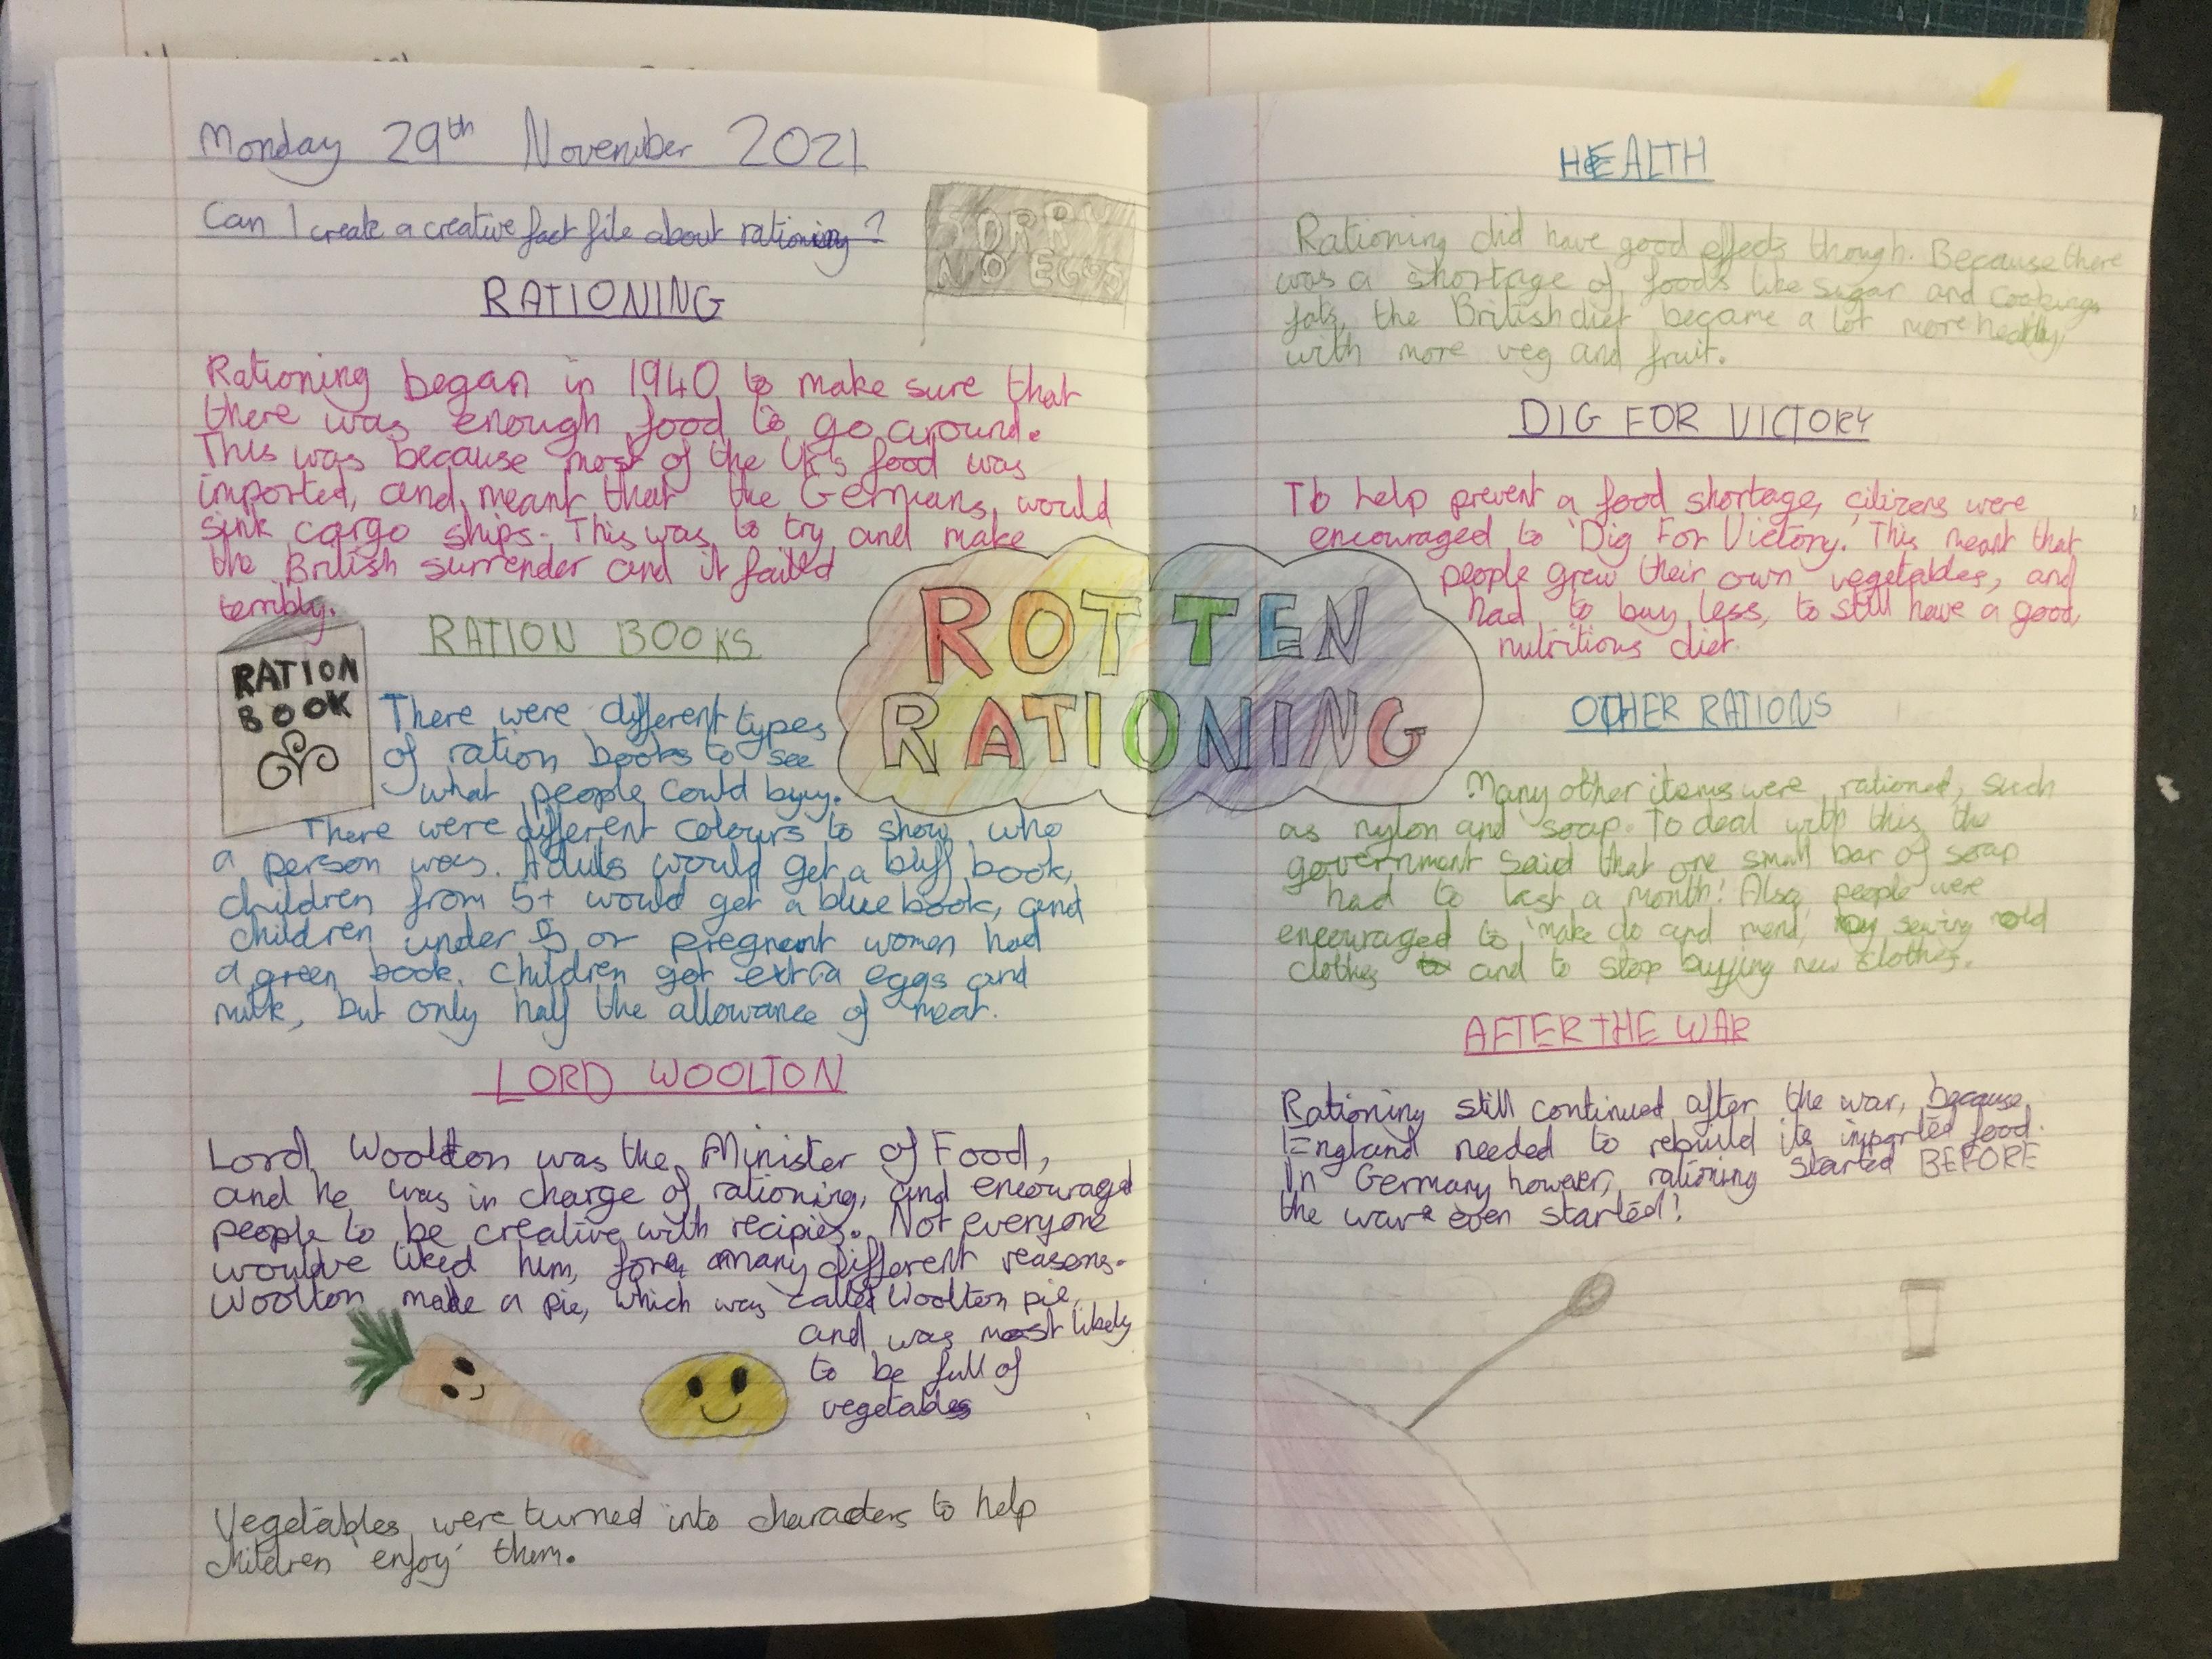 Monday 29th November 2021
Can I create a creative fact file about rationing?
SORRY
NO EGGS
RATIONING
Rationing began in 1940 to make sure that
there was enough food to go around.
This was because most of the UK's food was
imported, and meant that the Germans would
sink cargo ships. This was to try and make
the British surrender and it failed
terribly.
RATION BOOKS
RATION
BOOK
There were different types
of ration books to see
what people could buy.
There were different colours to show who
a person was. Adults would get a buff book,
children from 5+ would get a blue book, and
children under 5 or pregnant women had
a green book. Children got extra eggs and
milk, but only half the allowance of meat.
LORD WOOLTON
Lord Woolton was the Minister of Food,
and he was in charge of rationing, and encouraged
people to be creative with recipies. Not everyone
would've liked him, for many different reasons.
Woolton made a pie, which was called Woolton pie,
and was most likely
to be full of
vegetables
Vegetables were turned into characters to help
children 'enjoy' them.
ROTTEN
RATIONING
HEALTH
Rationing did have good effects though. Because there
was a shortage of foods like sugar and cooking
fats, the British diet became a lot more healthy
with more veg and fruit.
DIG FOR VICTORY
To help prevent a food shortage, citizens were
encouraged to 'Dig For Victory'. This meant that
people grew their own vegetables, and
had to buy less, to still have a good,
nutritious diet.
OTHER RATIONS
Many other items were rationed, such
as nylon and soap. To deal with this the
government said that one small bar of soap
had to last a month! Also, people were
encouraged to 'make do and mend', by sewing old
clothes and to stop buying new clothes.
AFTER THE WAR
Rationing still continued after the war, because
England needed to rebuild its imported food.
In Germany however, rationing started BEFORE
the war even started!